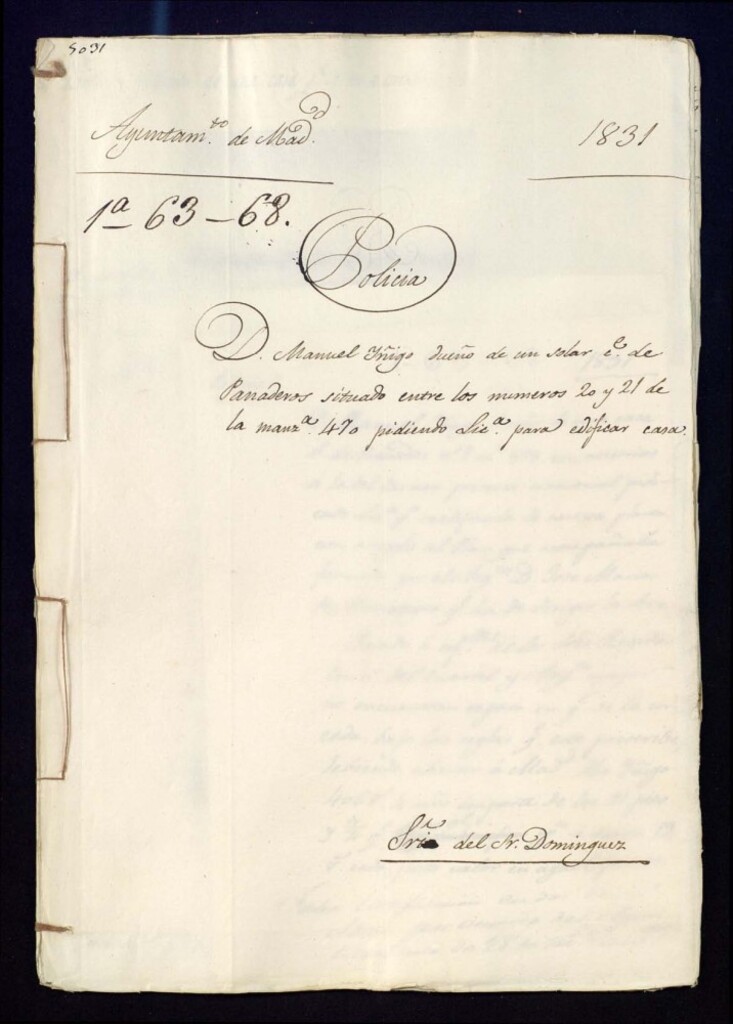 5031
Ayuntam.to de Mad.d
1831
1a 63-68.
Policia
D. Manuel Yñigo dueño de un solar c.e de
Panaderos situado entre los numeros 20 y 21 de
la manz.a 470 pidiendo Lic.a para edificar casa.
Sria del Sr. Dominguez